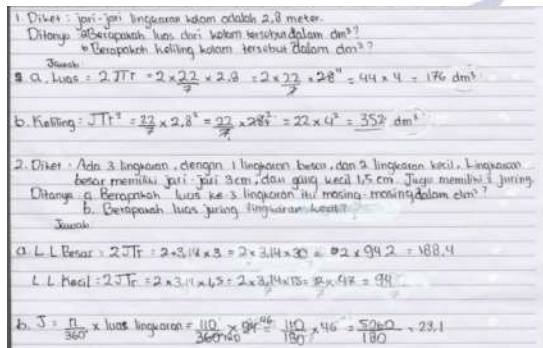 1. Diket : jari-jari lingkaran kolam adalah 2,8 meter.
Ditanya : a Berapakah luas dari kolam tersebut dalam dm³?
b Berapakah keliling kolam tersebut dalam dm³?
Jawab
a. Luas = 2πr = 2 × 22/7 × 2,8 = 2 × 22/7 × 28⁴ = 44 × 4 = 176 dm³
b. Keliling = πr² = 22/7 × 2,8² = 22/7 × 28² = 22 × 4² = 352 dm³
2. Diket : Ada 3 lingkaran, dengan 1 lingkaran besar, dan 2 lingkaran kecil. Lingkaran
besar memiliki jari-jari 3cm, dan yang kecil 1,5 cm. Juga memiliki juring.
Ditanya : a Berapakah luas ke 3 lingkaran itu masing-masing dalam dm³?
b. Berapakah luas juring lingkaran kecil?
Jawab
a. L L Besar : 2πr = 2 × 3,14 × 3 = 2 × 3,14 × 30 = 2 × 94,2 = 188,4
L L Kecil : 2πr = 2 × 3,14 × 1,5 = 2 × 3,14 × 15 = 2 × 47 = 94
b. J = n/360 × luas lingkaran = 110/360 × 94 = 110/180 × 46 = 5260/180 = 29,1